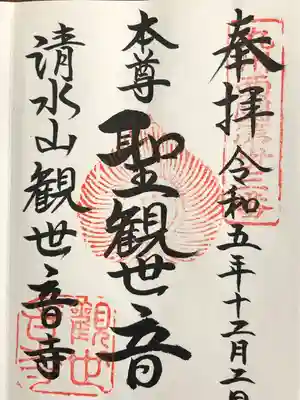 奉拝 令和五年十二月二日
本尊 聖観世音
清水山観世音寺
観世
音寺